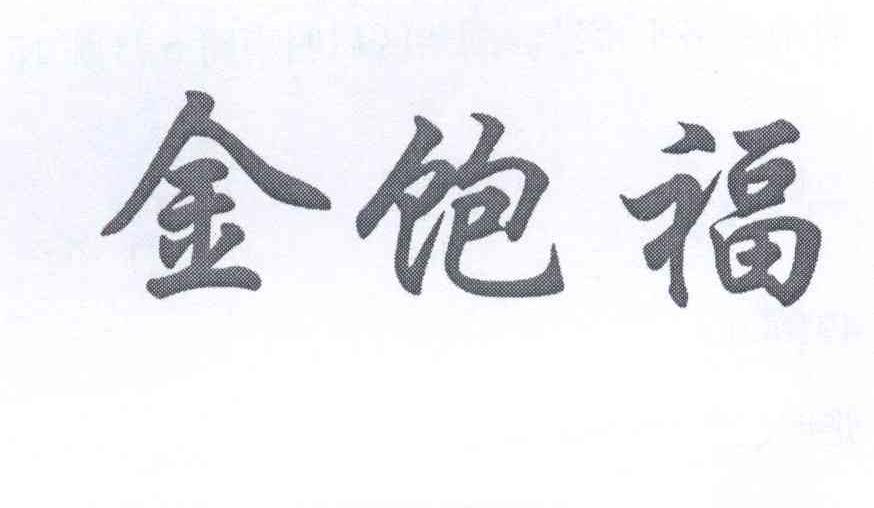 金饱福